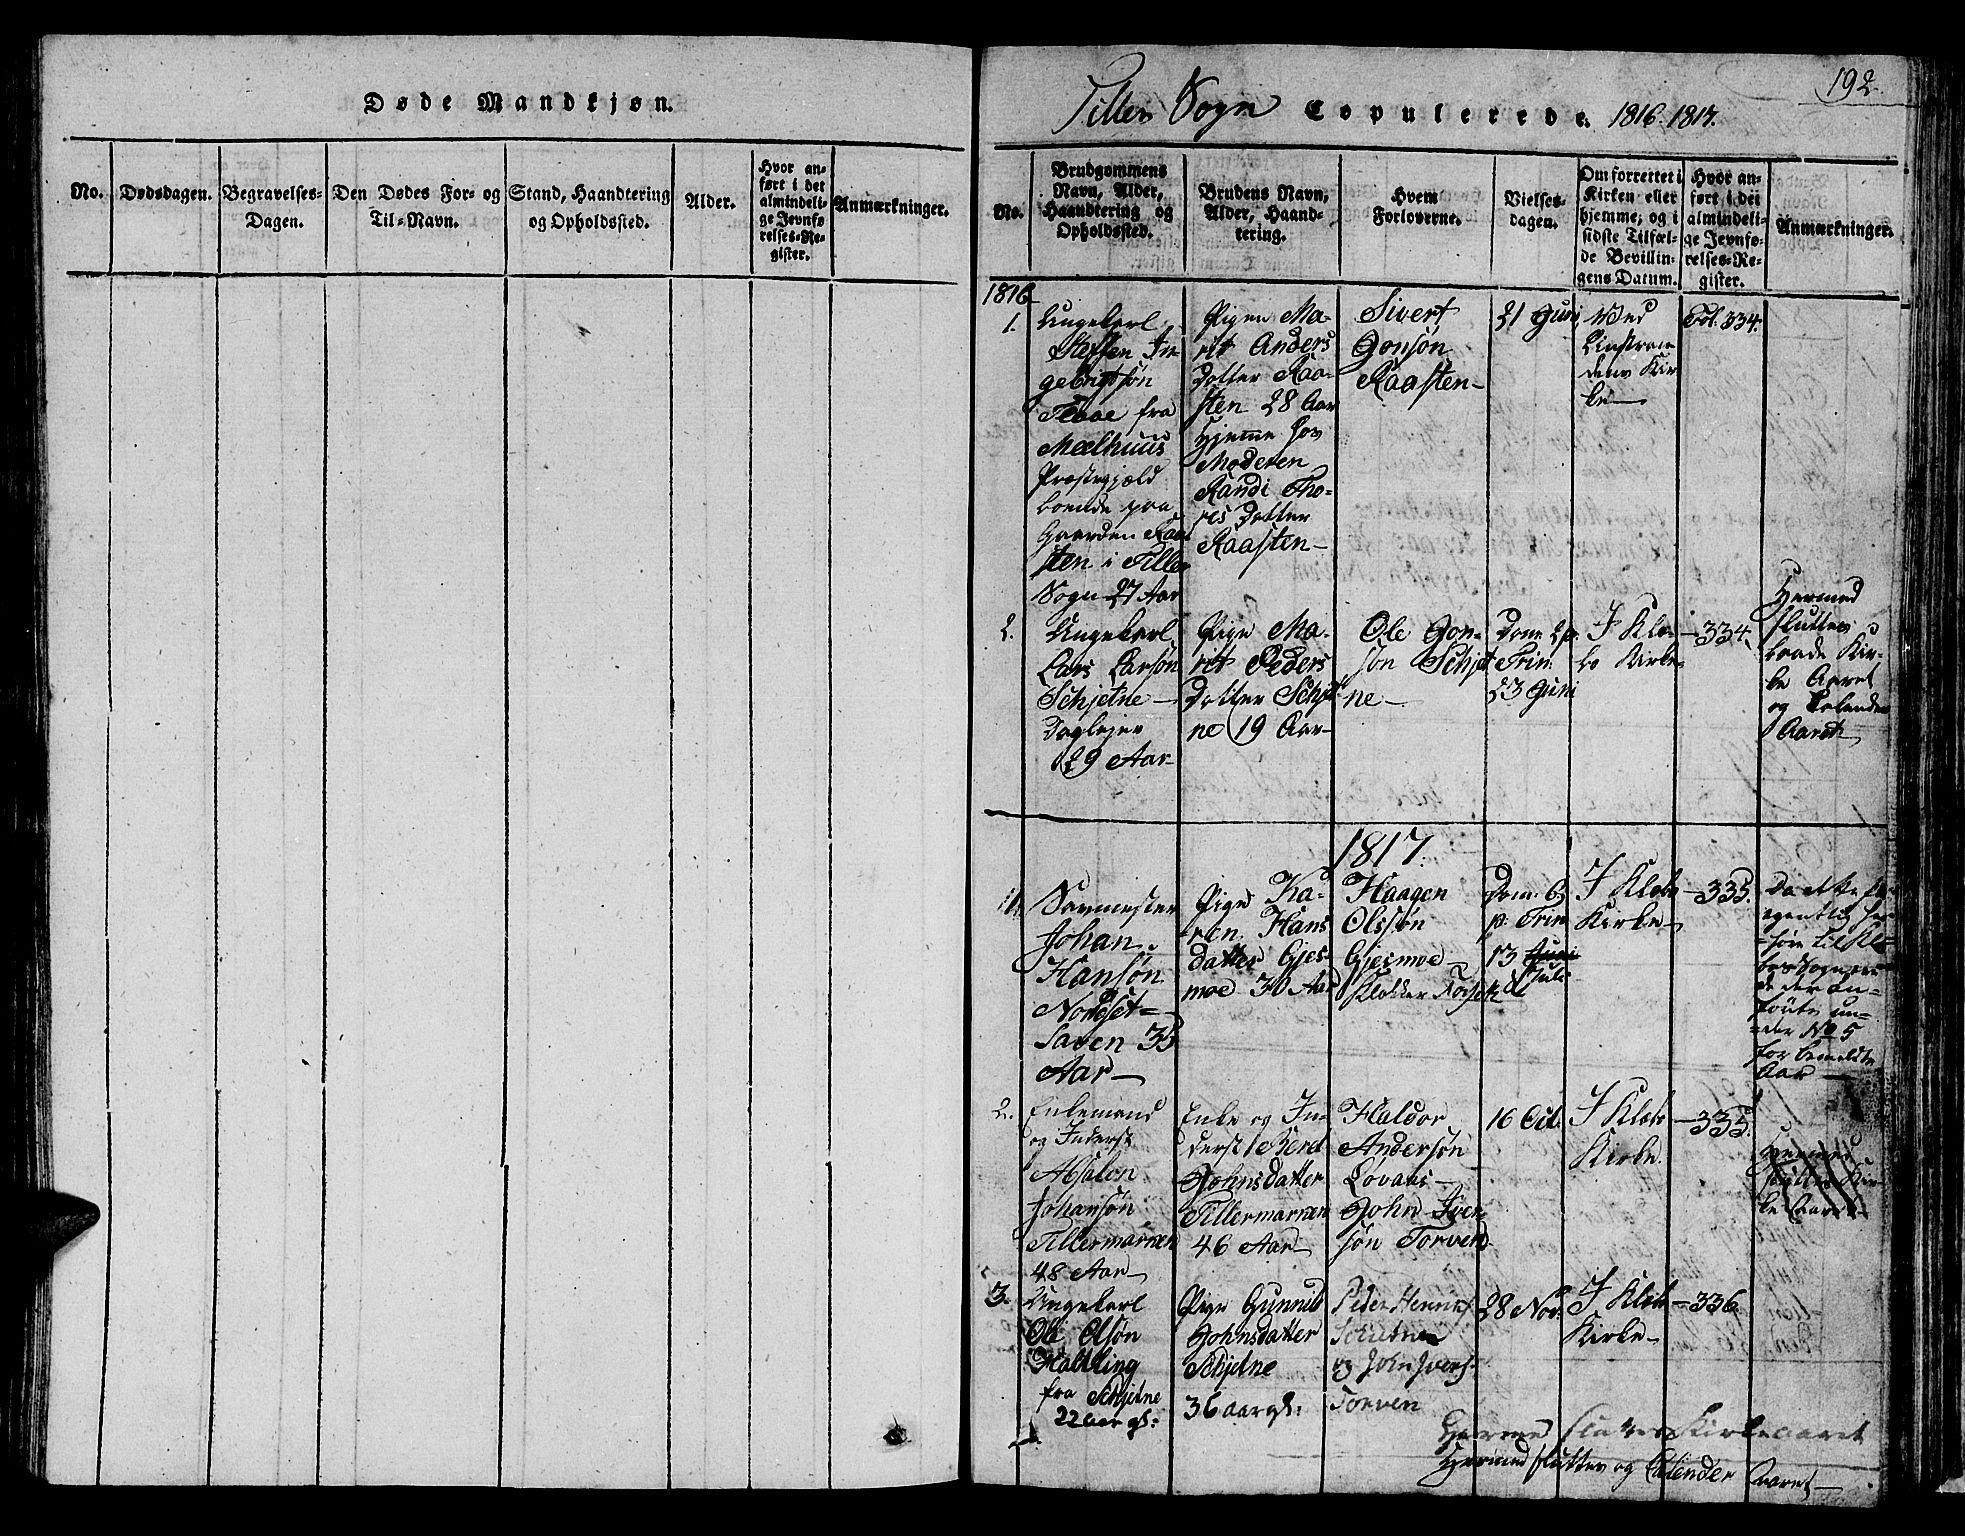 Døde Mandkjøn.
No.
Dødsdagen.
Begravelses-
Dagen.
Den Dødes For- og
Til-Navn.
Stand, Haandtering
og Opholdssted.
Alder.
Hvor an-
ført i det
almindeli-
ge Jevnfø-
relses-Re-
gister.
Anmærkninger.
192.
Tiller Sogn Copulerede. 1816. 1817.
No.
Brudgommens
Navn, Alder,
Haandtering og
Opholdssted.
Brudens Navn,
Alder, Haand-
tering.
Hvem
Forloverne.
Vielses-
dagen.
Om forrettet i
Kirken eller
hjemme, og i
sidste Tilfæl-
de Bevillin-
gens Datum.
Hvor an-
ført i det
almindeli-
ge Jevnfø-
relses-Re-
gister.
Anmærkninger.
1816
1.
Ungekarl
Steffen In
gebrigtsøn
fra
Meelhuus
Præstegjæld
boende paa
Gaarden Raa
sten i Tiller
Sogn 27 Aar
Pigen Ma-
rit Anders
Dotter Raa-
sten 28 Aar
hjemme hos
Moderen
Randi Tho-
res Dotter
Raasten-
Sivert
Jonsøn
Raasten-
21 Juni
Ved
Kir
ke-
Fol. 334.
2.
Ungekarl
Lars Larsøn
Schjetne-
Daglejer
29 Aar-
Pige Ma-
rit Peders
Dotter Schjet
ne 19 Aar-
Ole Jon-
søn Schjet
ne-
Dom 2 p.
Trin.
23 Juni
I Klæ-
bo Kirke-
-334.
Hermed
slutter
baade Kir-
ke Aaret
og Calender
Aaret
1817.
1.
Johan
Hansøn
Nordset-
Saven 35
Aar-
Pige Ka-
ren Hans
datter Gjes-
moe 30 Aar
Haagen
Olssøn
Gjesmoe-
Klokker
Dom: 6
p. Trin
13 Juni
Juli
I Klæbo
Kirke-
-335.
egentlig hø-
-rer til Klæ-
der an-
ført un-
-der No 5
for bemeldte
Aar-
2.
Enkemand
og Inderst
Absalon
Johansøn
Tillermarnen
48 Aar-
Enke og In-
derst Beret
Johnsdatter
Tillermarnen
46 Aar-
Haldor
Andersøn
Løvaas-
John Iver
søn Torven
16 Oct.
I Klæbo
Kirke.
-335.
Hermed
slutter Kir-
ke Aaret-
3.
Ungekarl
Ole Olsøn
Halling
fra Schjetne
22 aar gl:
Pige Gunnild
Johnsdatter
Schjetne
36 aar gl:
Peder
og John Ivers.
Torven
28 Nov.
I Klæbo
Kirke-
-336
slutter Kirkeaaret
Hermed slutter og Calender Aaret-